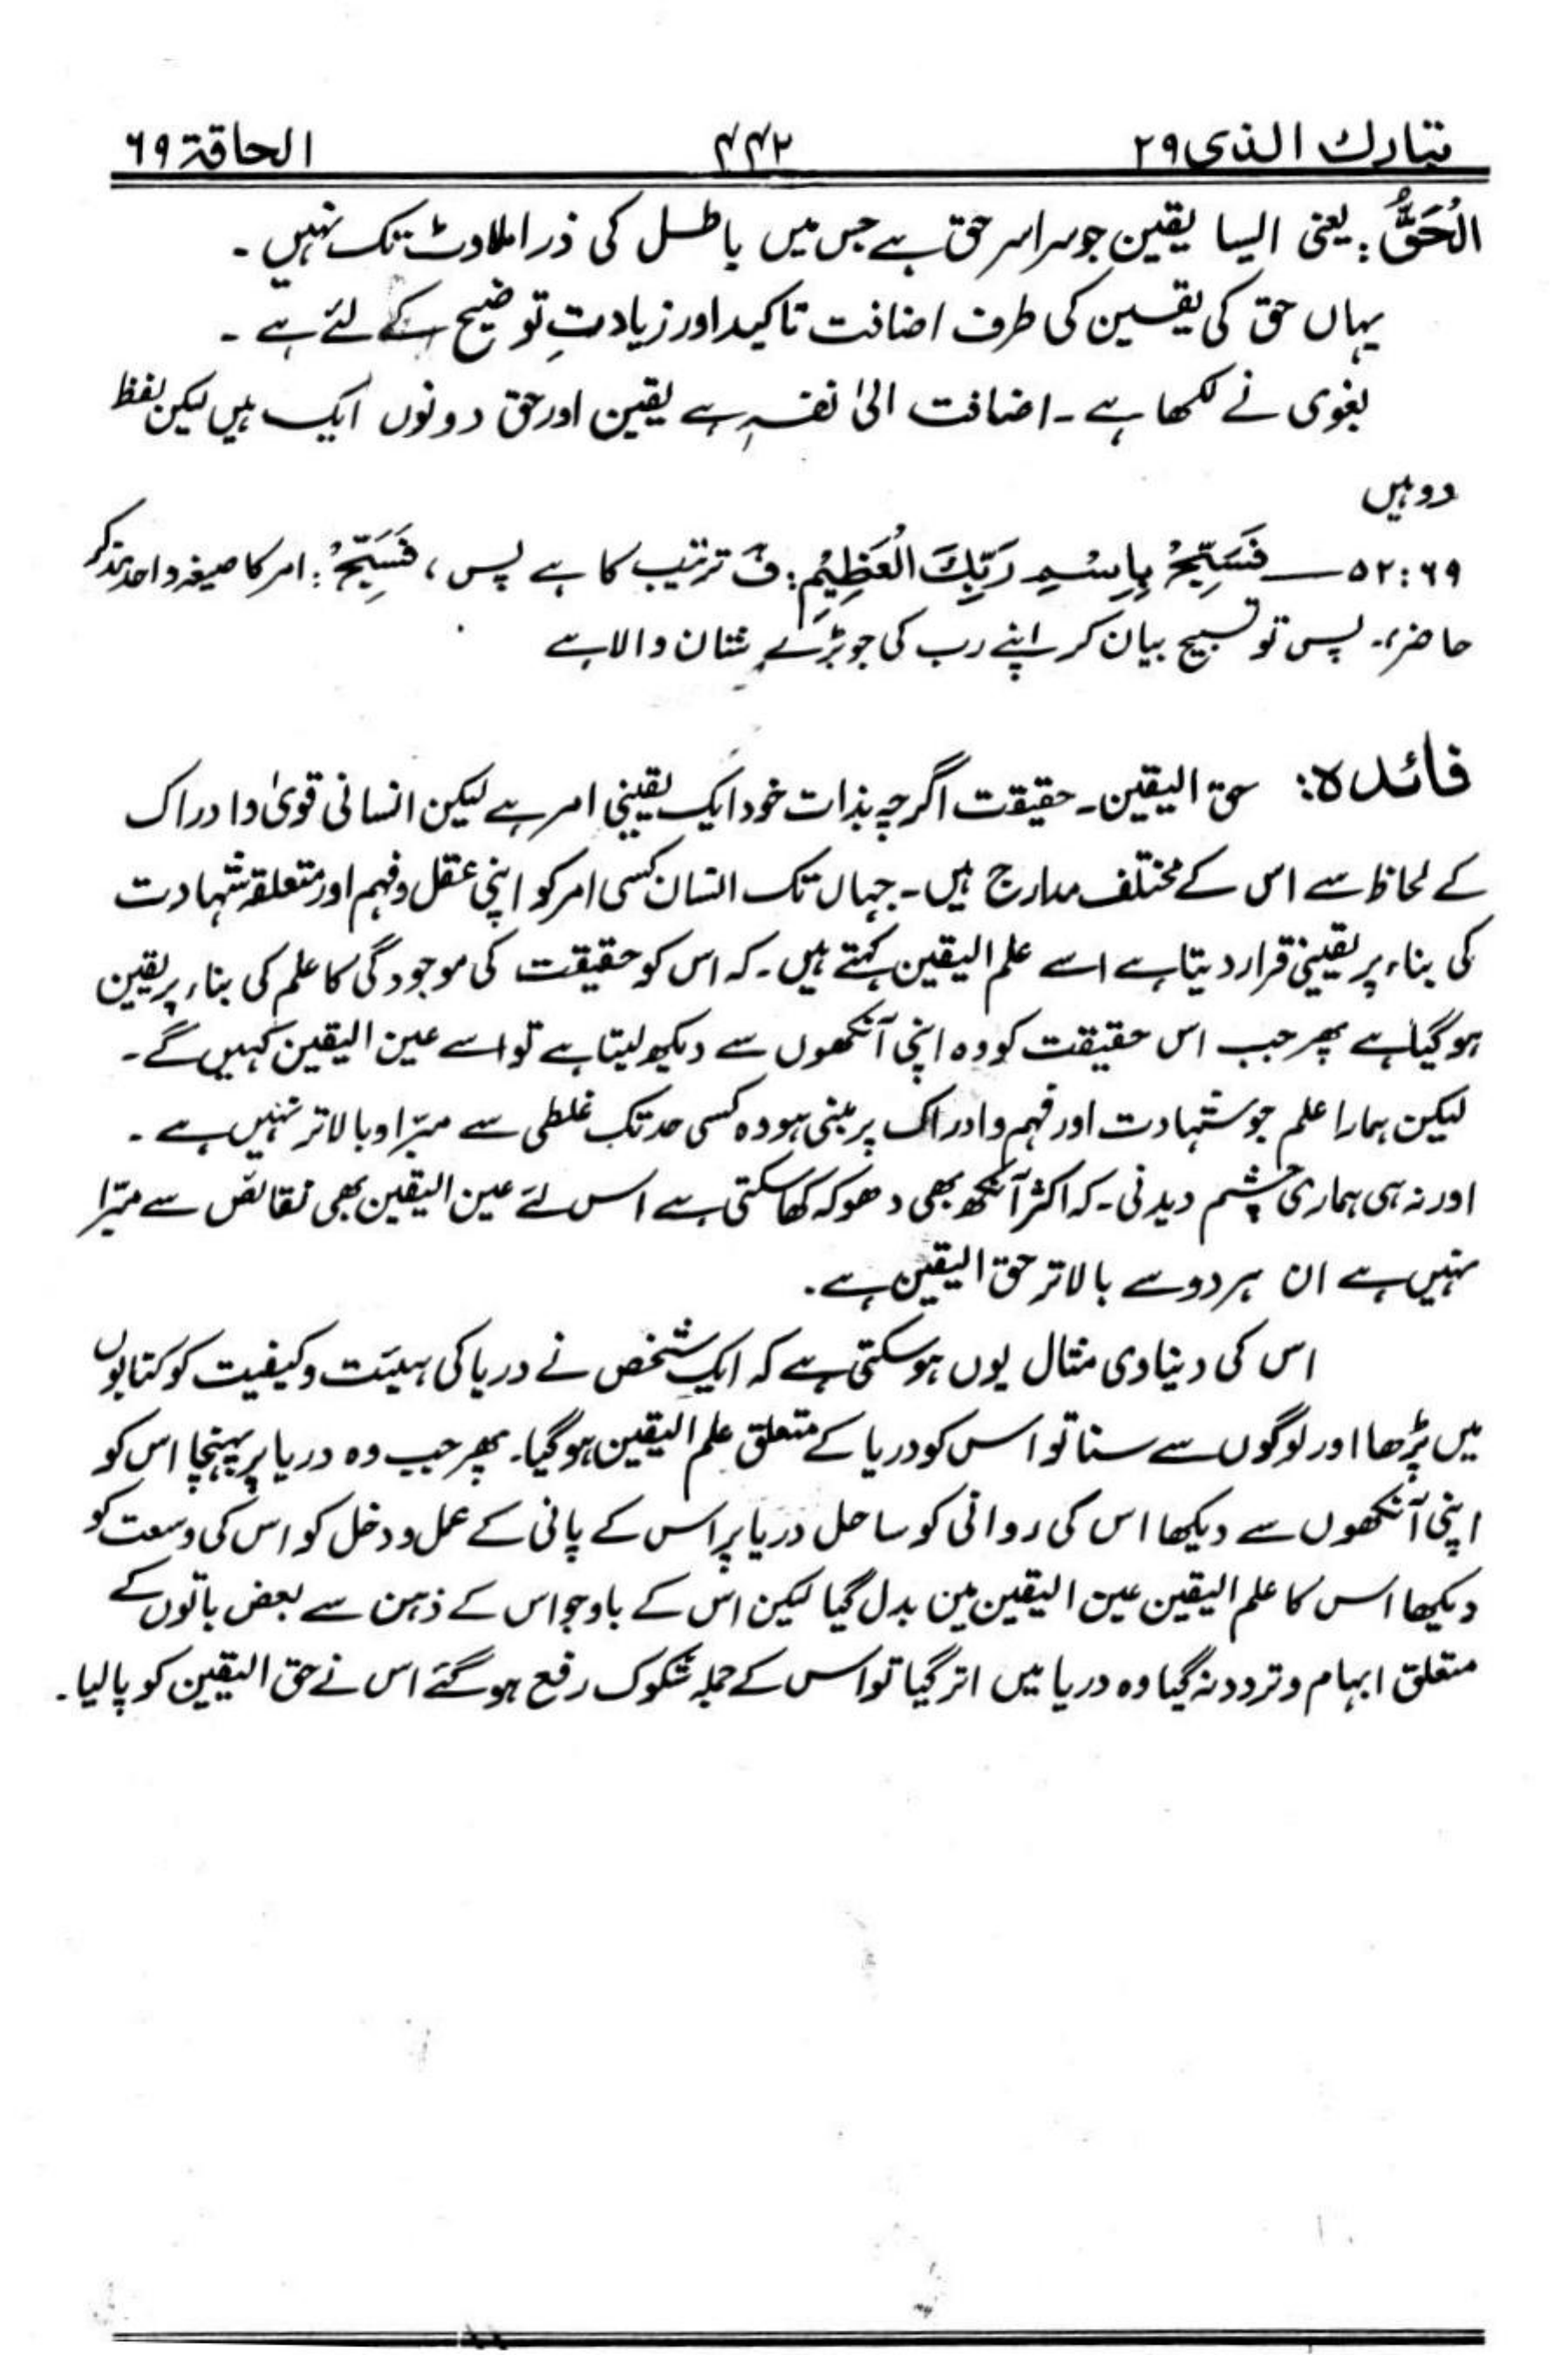 تبارك الذی ۲۹ ۴۴۲ الحاقة ۶۹
الْحَقُّ: یعنی ایسا یقین جو سراسر حق ہے جس میں باطل کی ذرا ملاوٹ تک نہیں ۔
یہاں حق کی یقین کی طرف اضافت تاکید اور زیادتِ توضیح کے لئے ہے ۔
بغوی نے لکھا ہے ۔ اضافت الیٰ نفسہٖ ہے یقین اور حق دونوں ایک ہیں لیکن لفظ
دو ہیں
۶۹:۵۲ — فَسَبِّحْ بِاسْمِ رَبِّكَ الْعَظِيْمِ: فَ ترتیب کا ہے پس ، فَسَبِّحْ: امر کا صیغہ واحد مذکر
حاضر، پس تو تسبیح بیان کر اپنے رب کی جو بڑے شان والا ہے
فائدہ: حق الیقین ۔ حقیقت اگرچہ بذات خود ایک یقینی امر ہے لیکن انسانی قویٰ و ادراک
کے لحاظ سے اس کے مختلف مدارج ہیں ۔ جہاں تک انسان کسی امر کو اپنی عقل و فہم اور متعلقہ شہادت
کی بناء پر یقینی قرار دیتا ہے اسے علم الیقین کہتے ہیں ۔ کہ اس کو حقیقت کی موجودگی کا علم کی بناء پر یقین
ہو گیا ہے پھر جب اس حقیقت کو وہ اپنی آنکھوں سے دیکھ لیتا ہے تو اسے عین الیقین کہیں گے ۔
لیکن ہمارا علم جو شہادت اور فہم و ادراک پر مبنی ہو وہ کسی حد تک غلطی سے مبرّا و بالاتر نہیں ہے ۔
اور نہ ہی ہماری چشم دیدنی ۔ کہ اکثر آنکھ بھی دھوکہ کھا سکتی ہے اس لئے عین الیقین بھی نقائص سے مبّرا
نہیں ہے ان ہر دو سے بالاتر حق الیقین ہے ۔
اس کی دیناوی مثال یوں ہو سکتی ہے کہ ایک شخص نے دریا کی ہیئت و کیفیت کو کتابوں
میں پڑھا اور لوگوں سے سنا تو اس کو دریا کے متعلق علم الیقین ہو گیا ۔ پھر جب وہ دریا پر پہنچا اس کو
اپنی آنکھوں سے دیکھا اس کی روانی کو ساحل دریا پر اس کے پانی کے عمل و دخل کو اس کی وسعت کو
دیکھا اس کا علم الیقین عین الیقین مین بدل گیا لیکن اس کے باوجو اس کے ذہن سے بعض باتوں کے
متعلق ابہام و تردد نہ گیا وہ دریا میں اتر گیا تو اس کے جملہ شکوک رفع ہو گئے اس نے حق الیقین کو پا لیا ۔